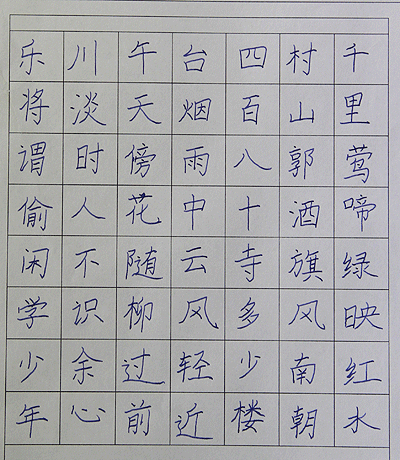 千里莺啼绿映红水
村山郭酒旗风南朝
四百八十寺多少楼
台烟雨中云风轻近
午天傍花随柳过前
川淡时人不识余心
乐将谓偷闲学少年